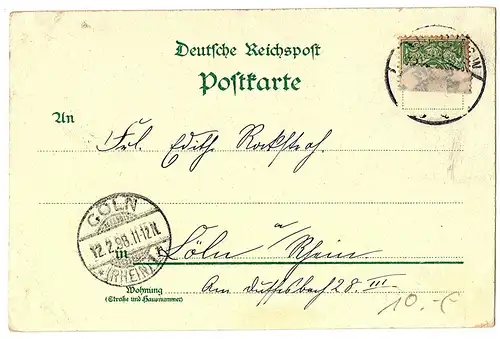 Deutsche Reichspost
Postkarte
An
Frl. Edith Rockstroh.
CÖLN
12.2.98.11-12N.
* (RHEIN) 1 *
in Cöln a/ Rhein.
Wohnung
(Straße und Hausnummer)
Am Duffesbach 28 III
10.-€